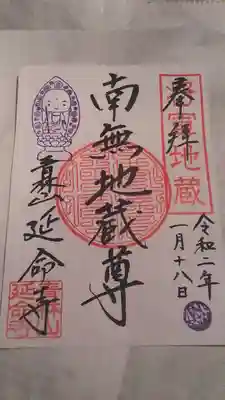 奉拝
地蔵
令和二年
一月十八日
南無地蔵尊
山延命寺